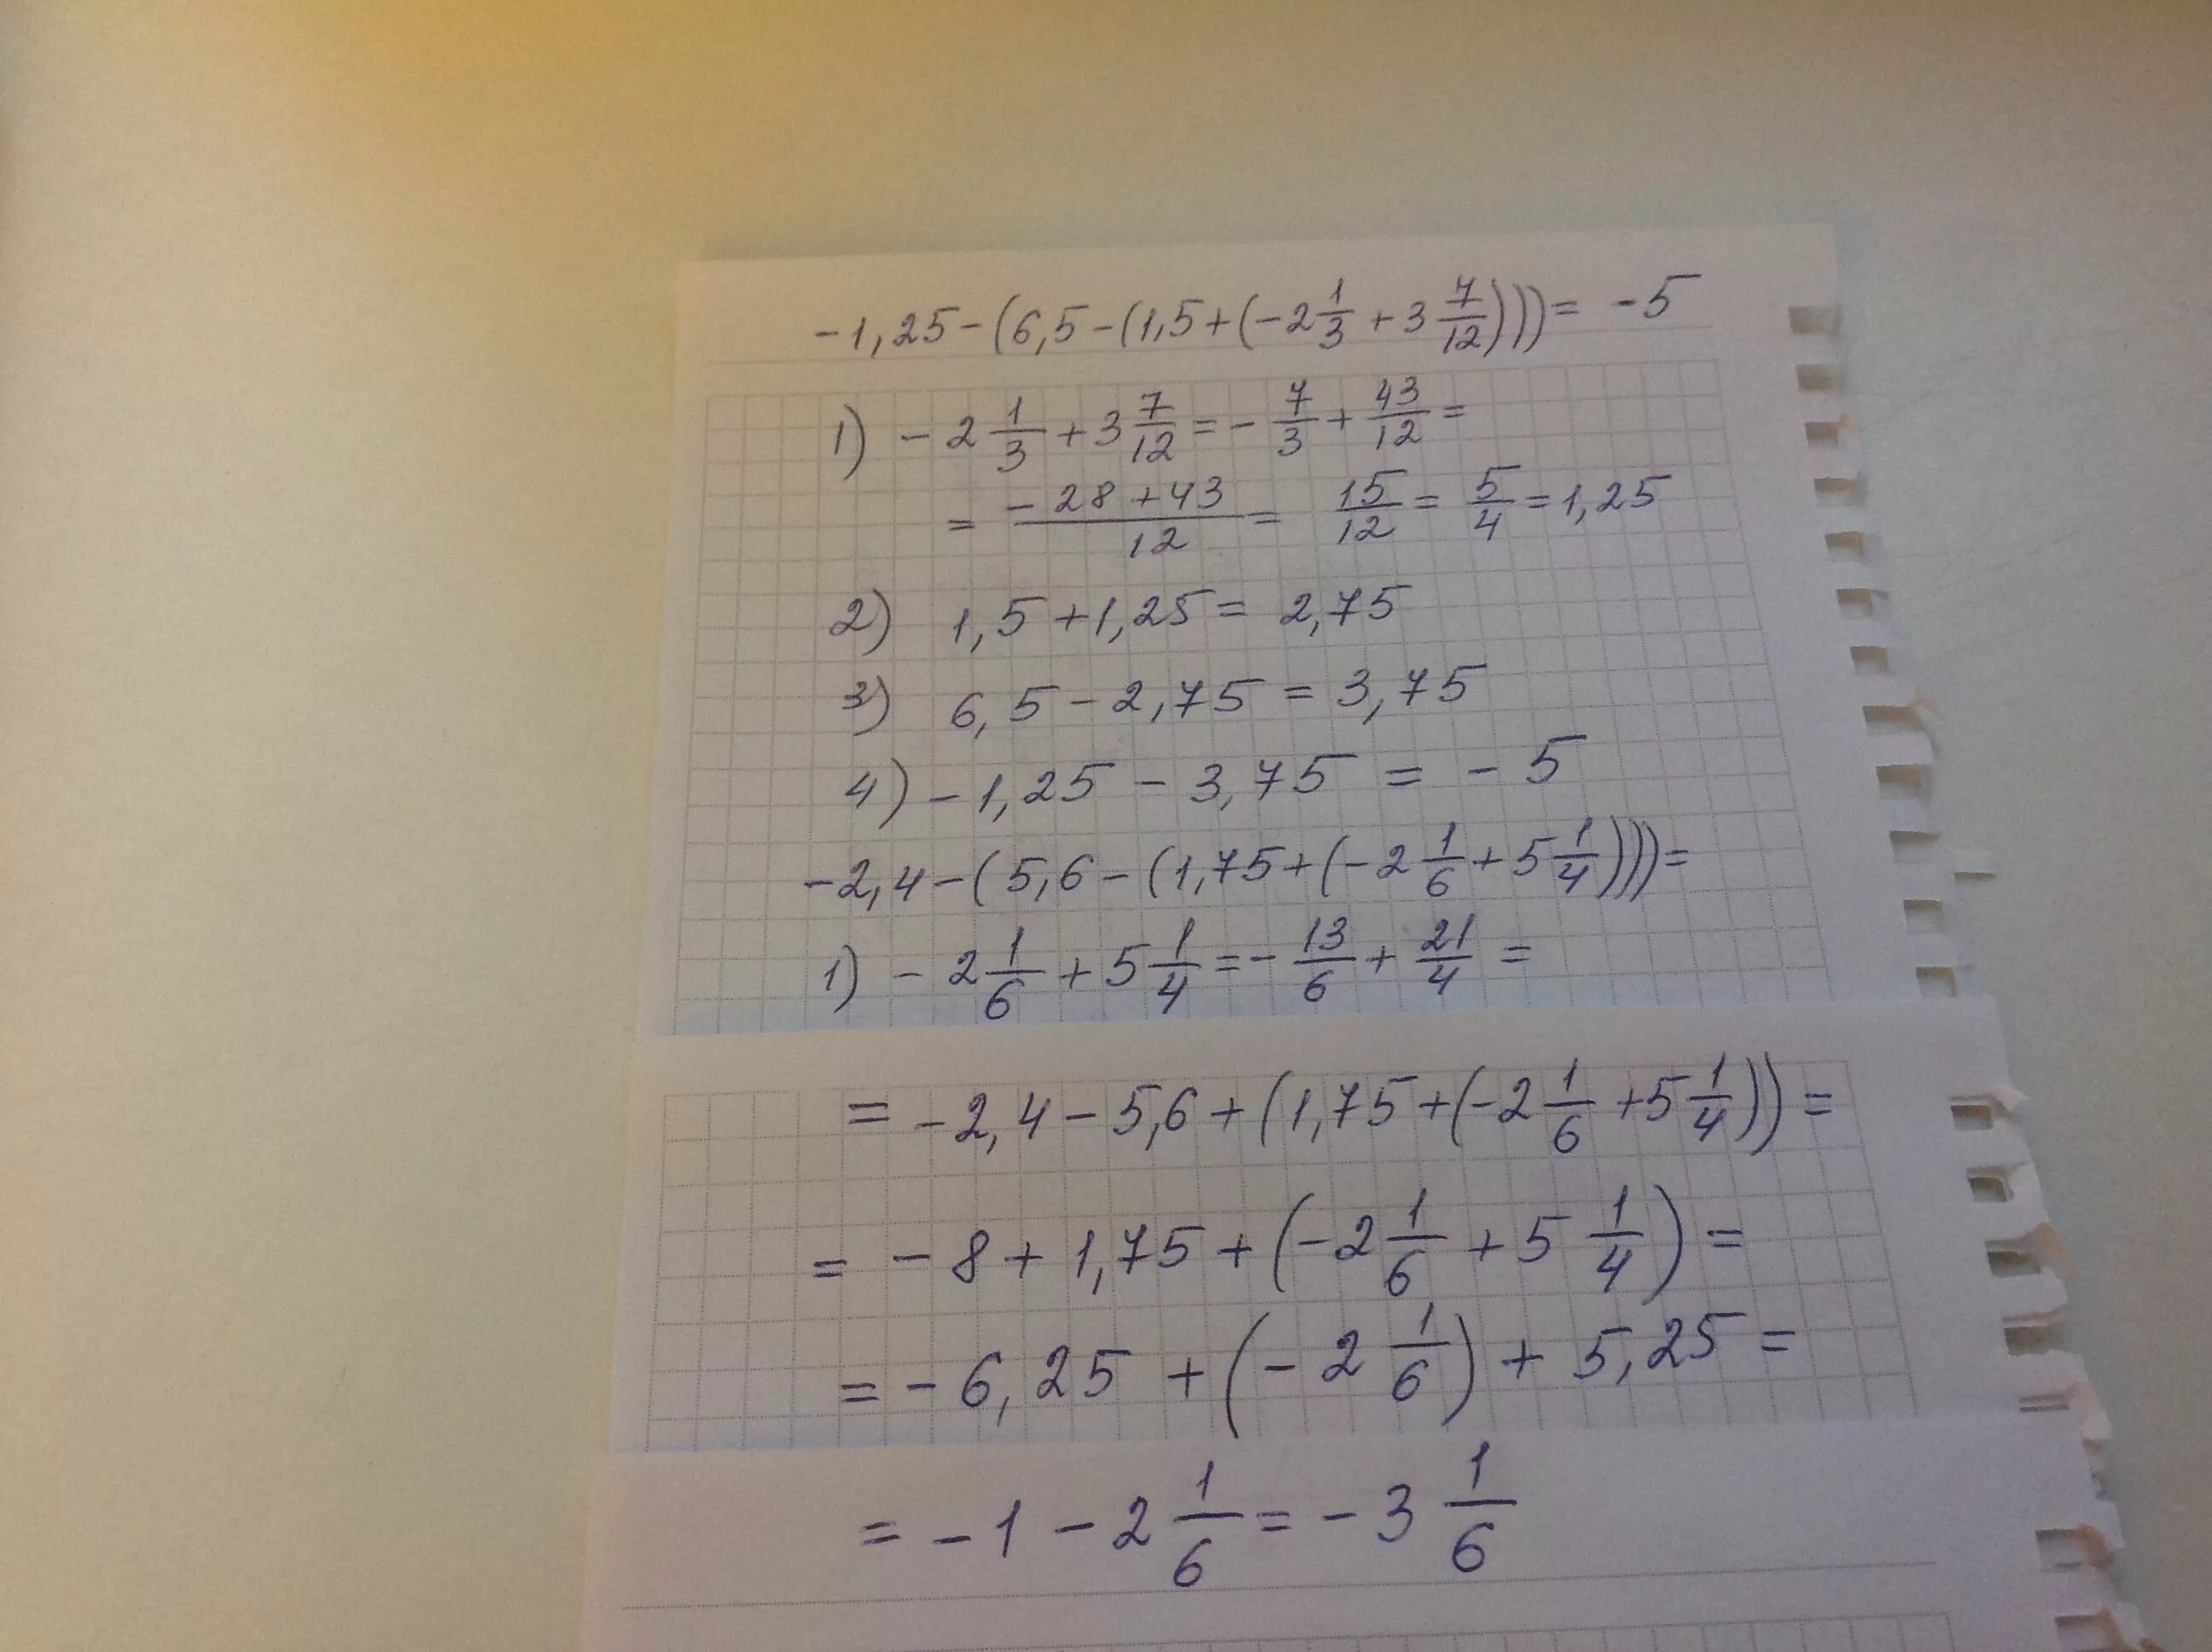 -1,25-(6,5-(1,5+(-2 1/3+3 7/12)))= -5
1) -2 1/3+3 7/12=-7/3+43/12=
= (-28+43)/12= 15/12=5/4=1,25
2) 1,5+1,25= 2,75
3) 6,5-2,75=3,75
4) -1,25-3,75=-5
-2,4-(5,6-(1,75+(-2 1/6+5 1/4)))=
1) -2 1/6+5 1/4=-13/6+21/4=
=-2,4-5,6+(1,75+(-2 1/6+5 1/4))=
=-8+1,75+(-2 1/6+5 1/4)=
=-6,25+(-2 1/6)+5,25=
=-1-2 1/6=-3 1/6